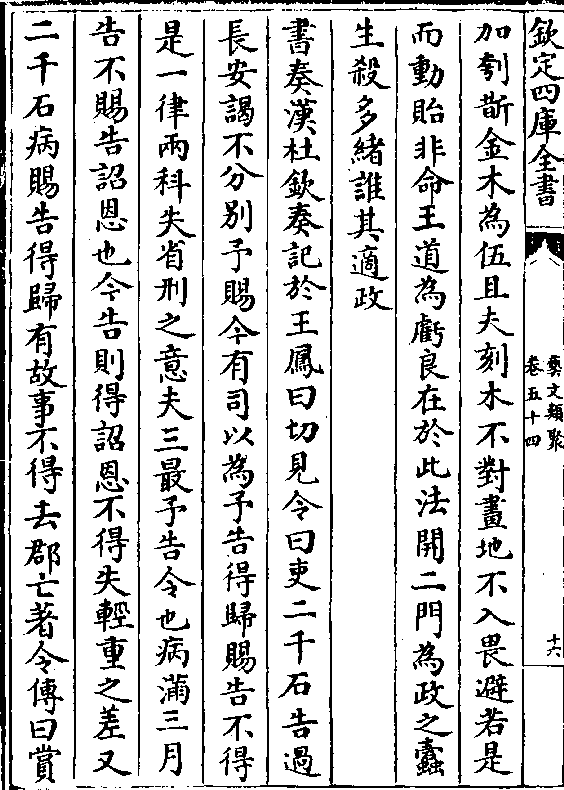 欽定四庫全書
藝文類聚
卷五十四
十六
加刳斮金木為伍且夫刻木不對畫地不入畏避若是
而動貽非命王道為虧良在於此法開二門為政之蠹
生殺多緒誰其適政
書奏漢杜欽奏記於王鳳曰切見令曰吏二千石告過
長安謁不分別予賜今有司以為予告得歸賜告不得
是一律兩科失省刑之意夫三最予告令也病滿三月
告不賜告詔恩也今告則得詔恩不得失輕重之差又
二千石病賜告得歸有故事不得去郡亡著令傳曰賞